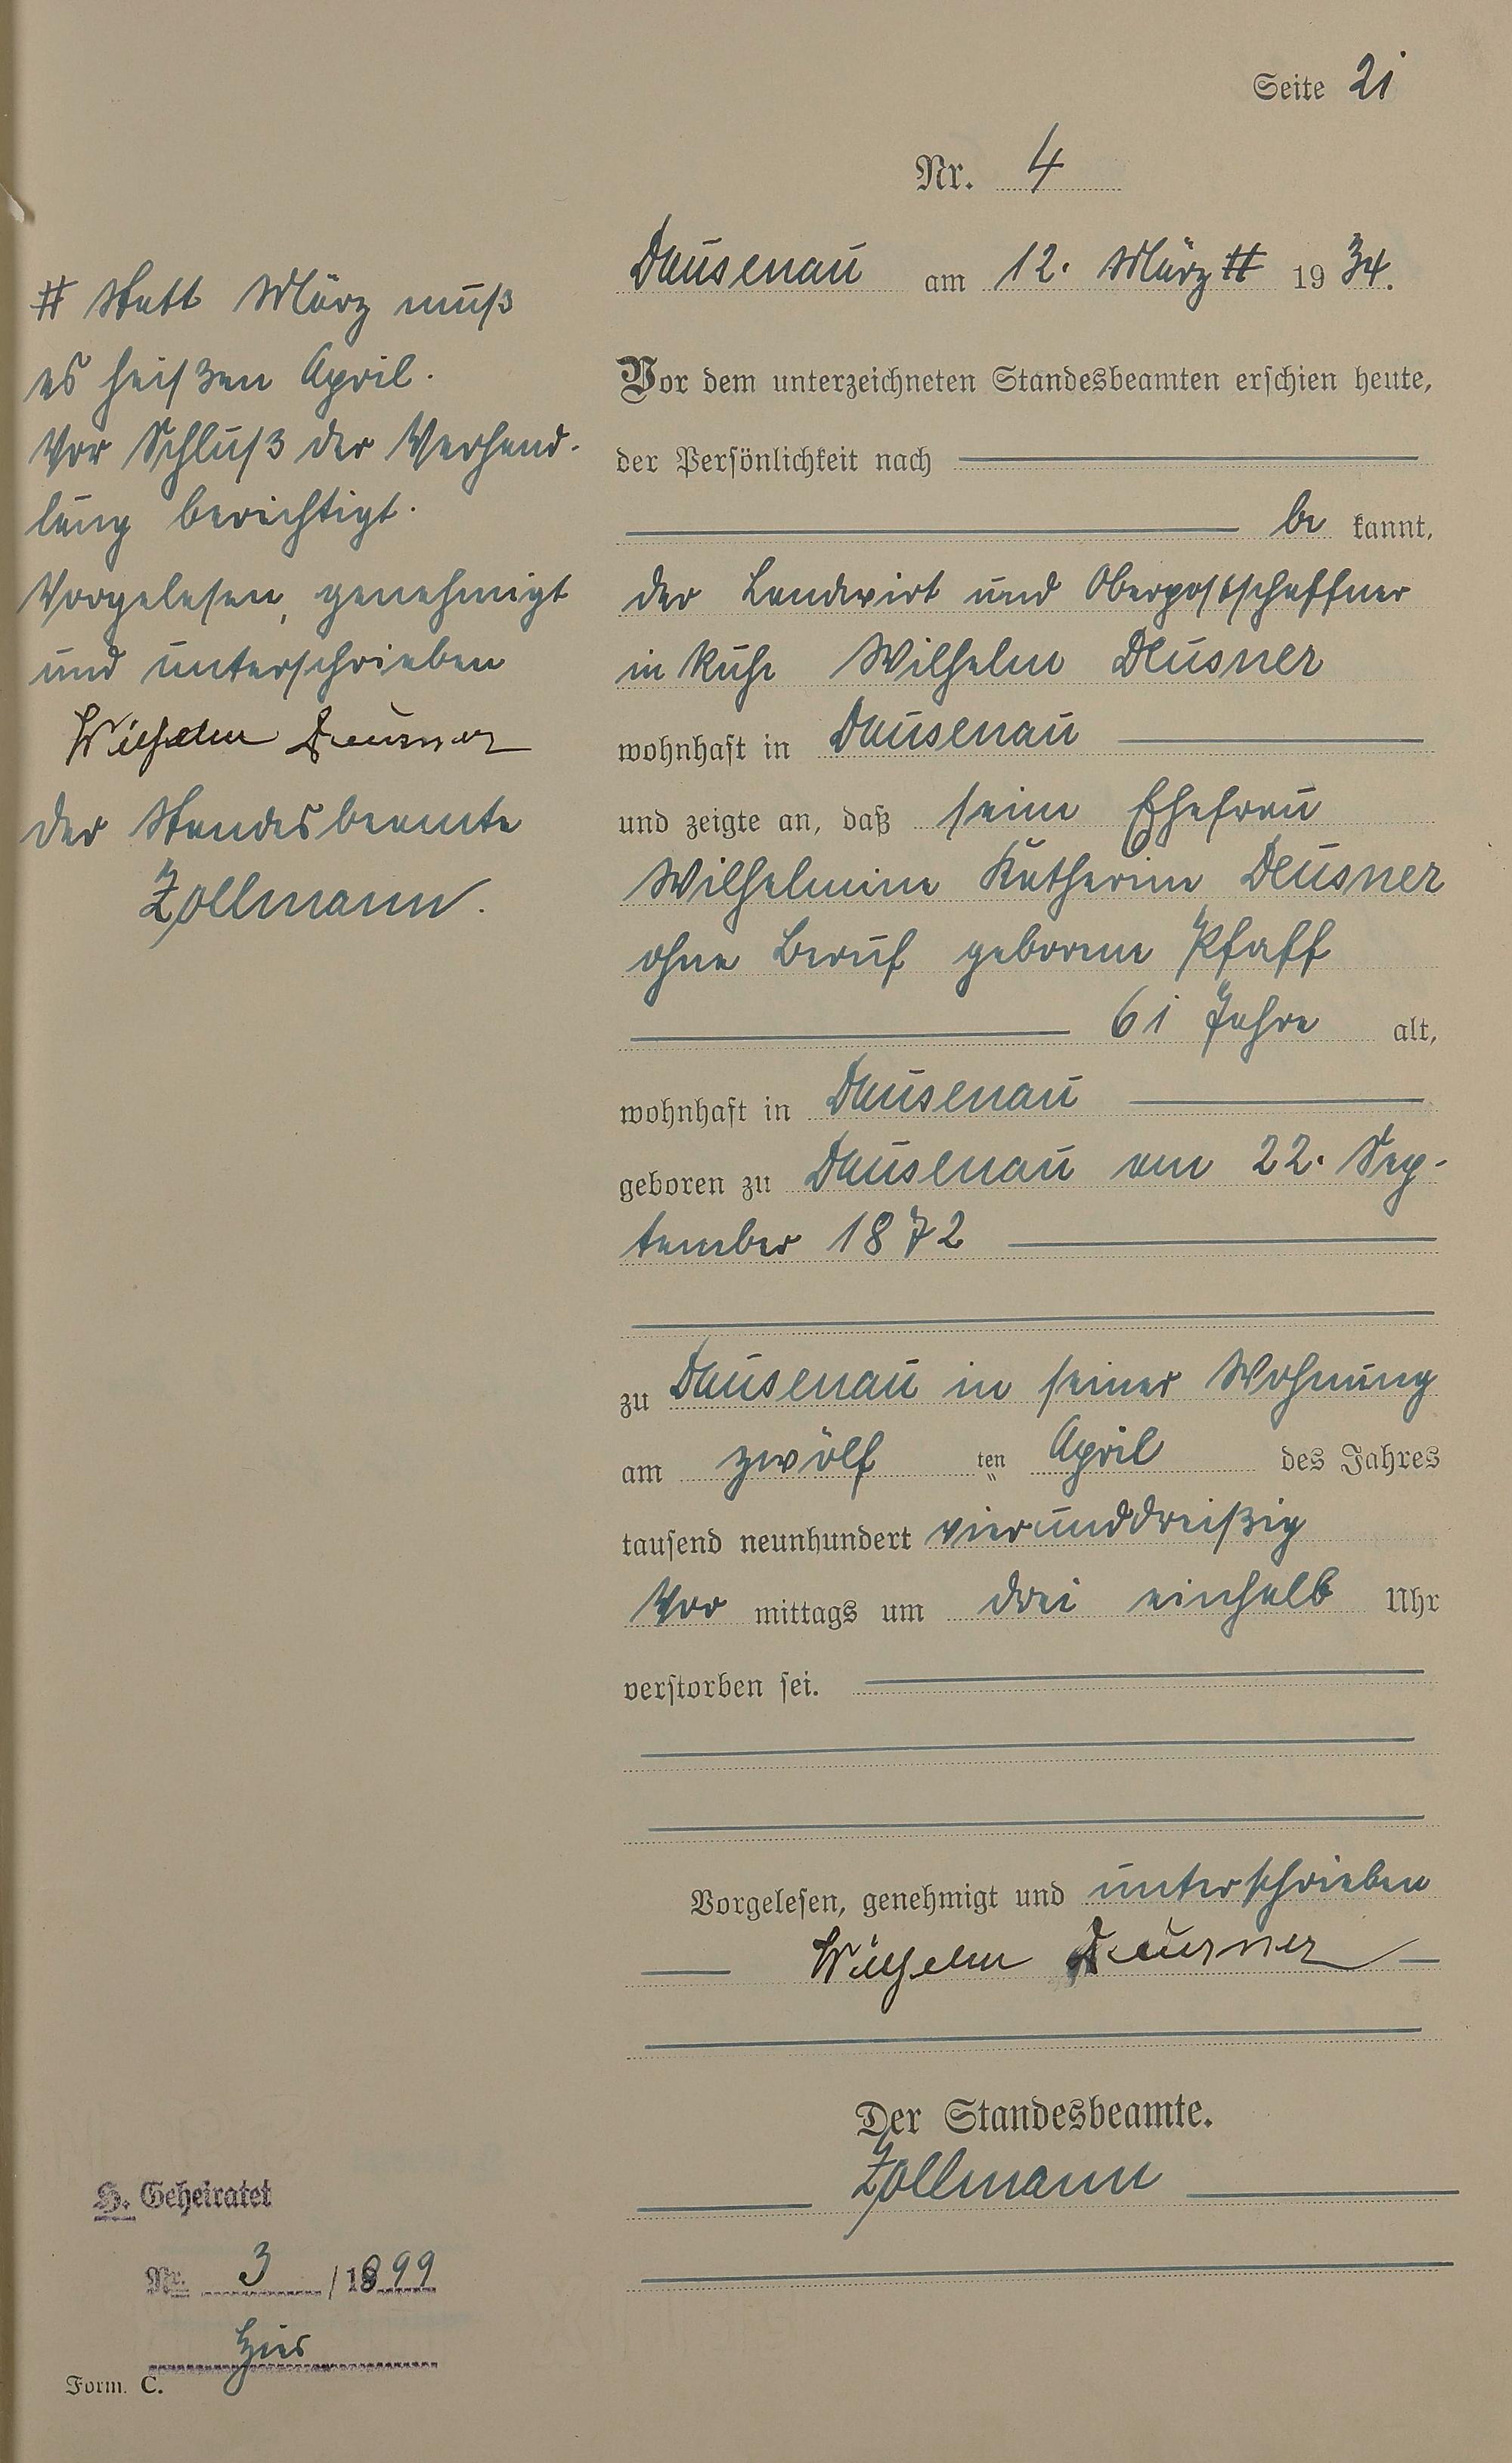 Seite 21
Nr. 4
Dausenau am 12. März # 1934.
Vor dem unterzeichneten Standesbeamten erschien heute,
der Persönlichkeit nach
be kannt,
der Landwirt und Oberpostschaffner
in Ruhe Wilhelm Deusner
wohnhaft in Dausenau
und zeigte an, daß seine Ehefrau
Wilhelmine Katharine Deusner
ohne Beruf geborene Pfaff
61 Jahre alt,
wohnhaft in Dausenau
geboren zu Dausenau am 22. Sep-
tember 1872
zu Dausenau in seiner Wohnung
am zwölf ten April des Jahres
tausend neunhundert vierunddreißig
Vor mittags um drei einhalb Uhr
verstorben sei.
Vorgelesen, genehmigt und unterschrieben
Wilhelm Deusner
Der Standesbeamte.
Zollmann
# Statt März muß
es heißen April.
Vor Schluß der Verhand-
lung berichtigt.
Vorgelesen, genehmigt
und unterschrieben
Wilhelm Deusner
Der Standesbeamte
Zollmann.
H. Geheiratet
Nr. 3 / 1899
hier
Form. C.